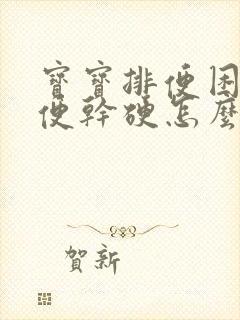 寶寶排便困
便幹硬怎麼
賀新